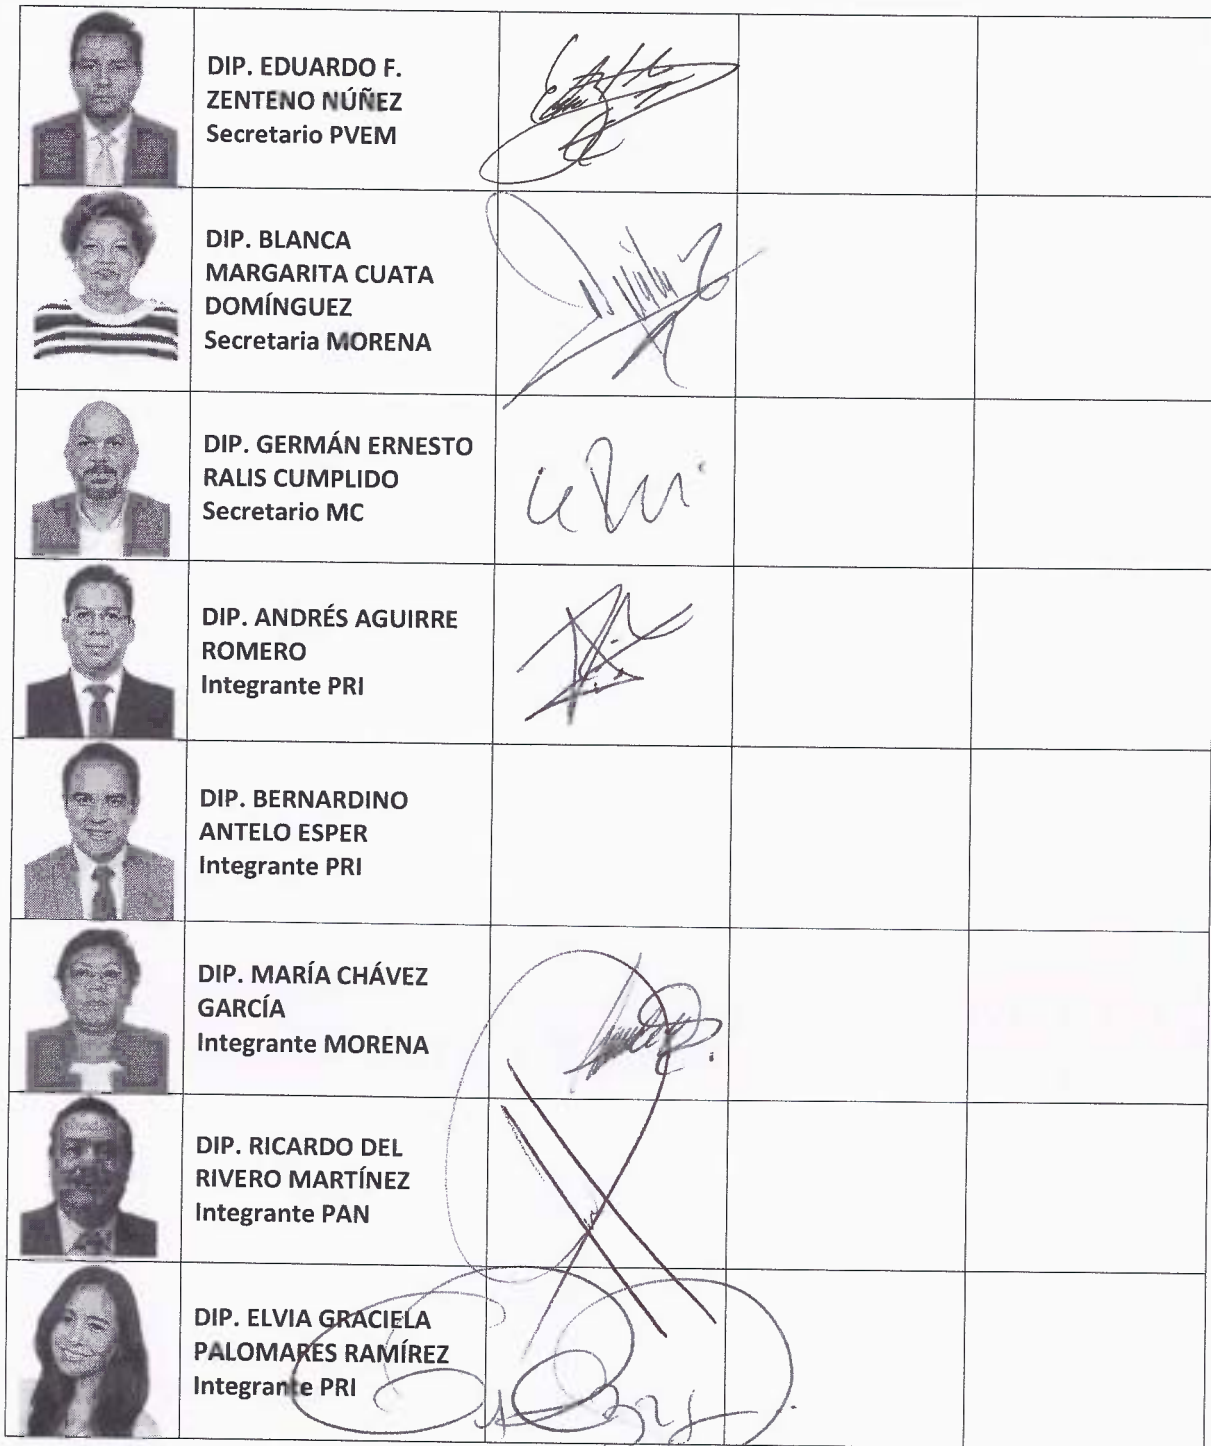 DIP. EDUARDO F.
ZENTENO NÚÑEZ
Secretario PVEM
DIP. BLANCA
MARGARITA CUATA
DOMÍNGUEZ
Secretaria MORENA
DIP. GERMÁN ERNESTO
RALIS CUMPLIDO
Secretario MC
DIP. ANDRÉS AGUIRRE
ROMERO
Integrante PRI
DIP. BERNARDINO
ANTELO ESPER
Integrante PRI
DIP. MARÍA CHÁVEZ
GARCÍA
Integrante MORENA
DIP. RICARDO DEL
RIVERO MARTÍNEZ
Integrante PAN
DIP. ELVIA GRACIELA
PALOMARES RAMÍREZ
Integrante PRI